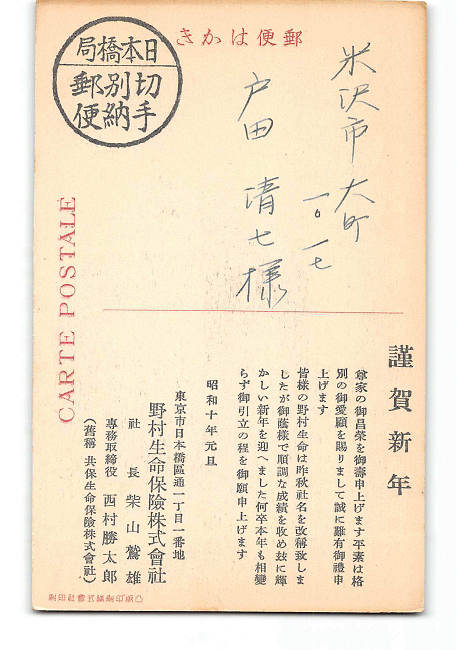 郵便はかき
日本橋局
切手
別納
郵便
CARTE POSTALE
米沢市大町
一〇一七
戸田清七様
謹賀新年
尊家の御昌榮を御壽申上げます平素は格
別の御愛顧を賜りまして誠に難有御禮申
上げます
皆樣の野村生命は昨秋社名を改稱致しま
したが御蔭樣で順調な成績を收め玆に輝
かしい新年を迎へました何卒本年も相變
らず御引立の程を御願申上げます
昭和十年元旦
東京市日本橋區通一丁目一番地
野村生命保險株式會社
社長 柴山鷲雄
專務取締役 西村勝太郎
(舊稱 共保生命保險株式會社)
凸版印刷株式會社印刷